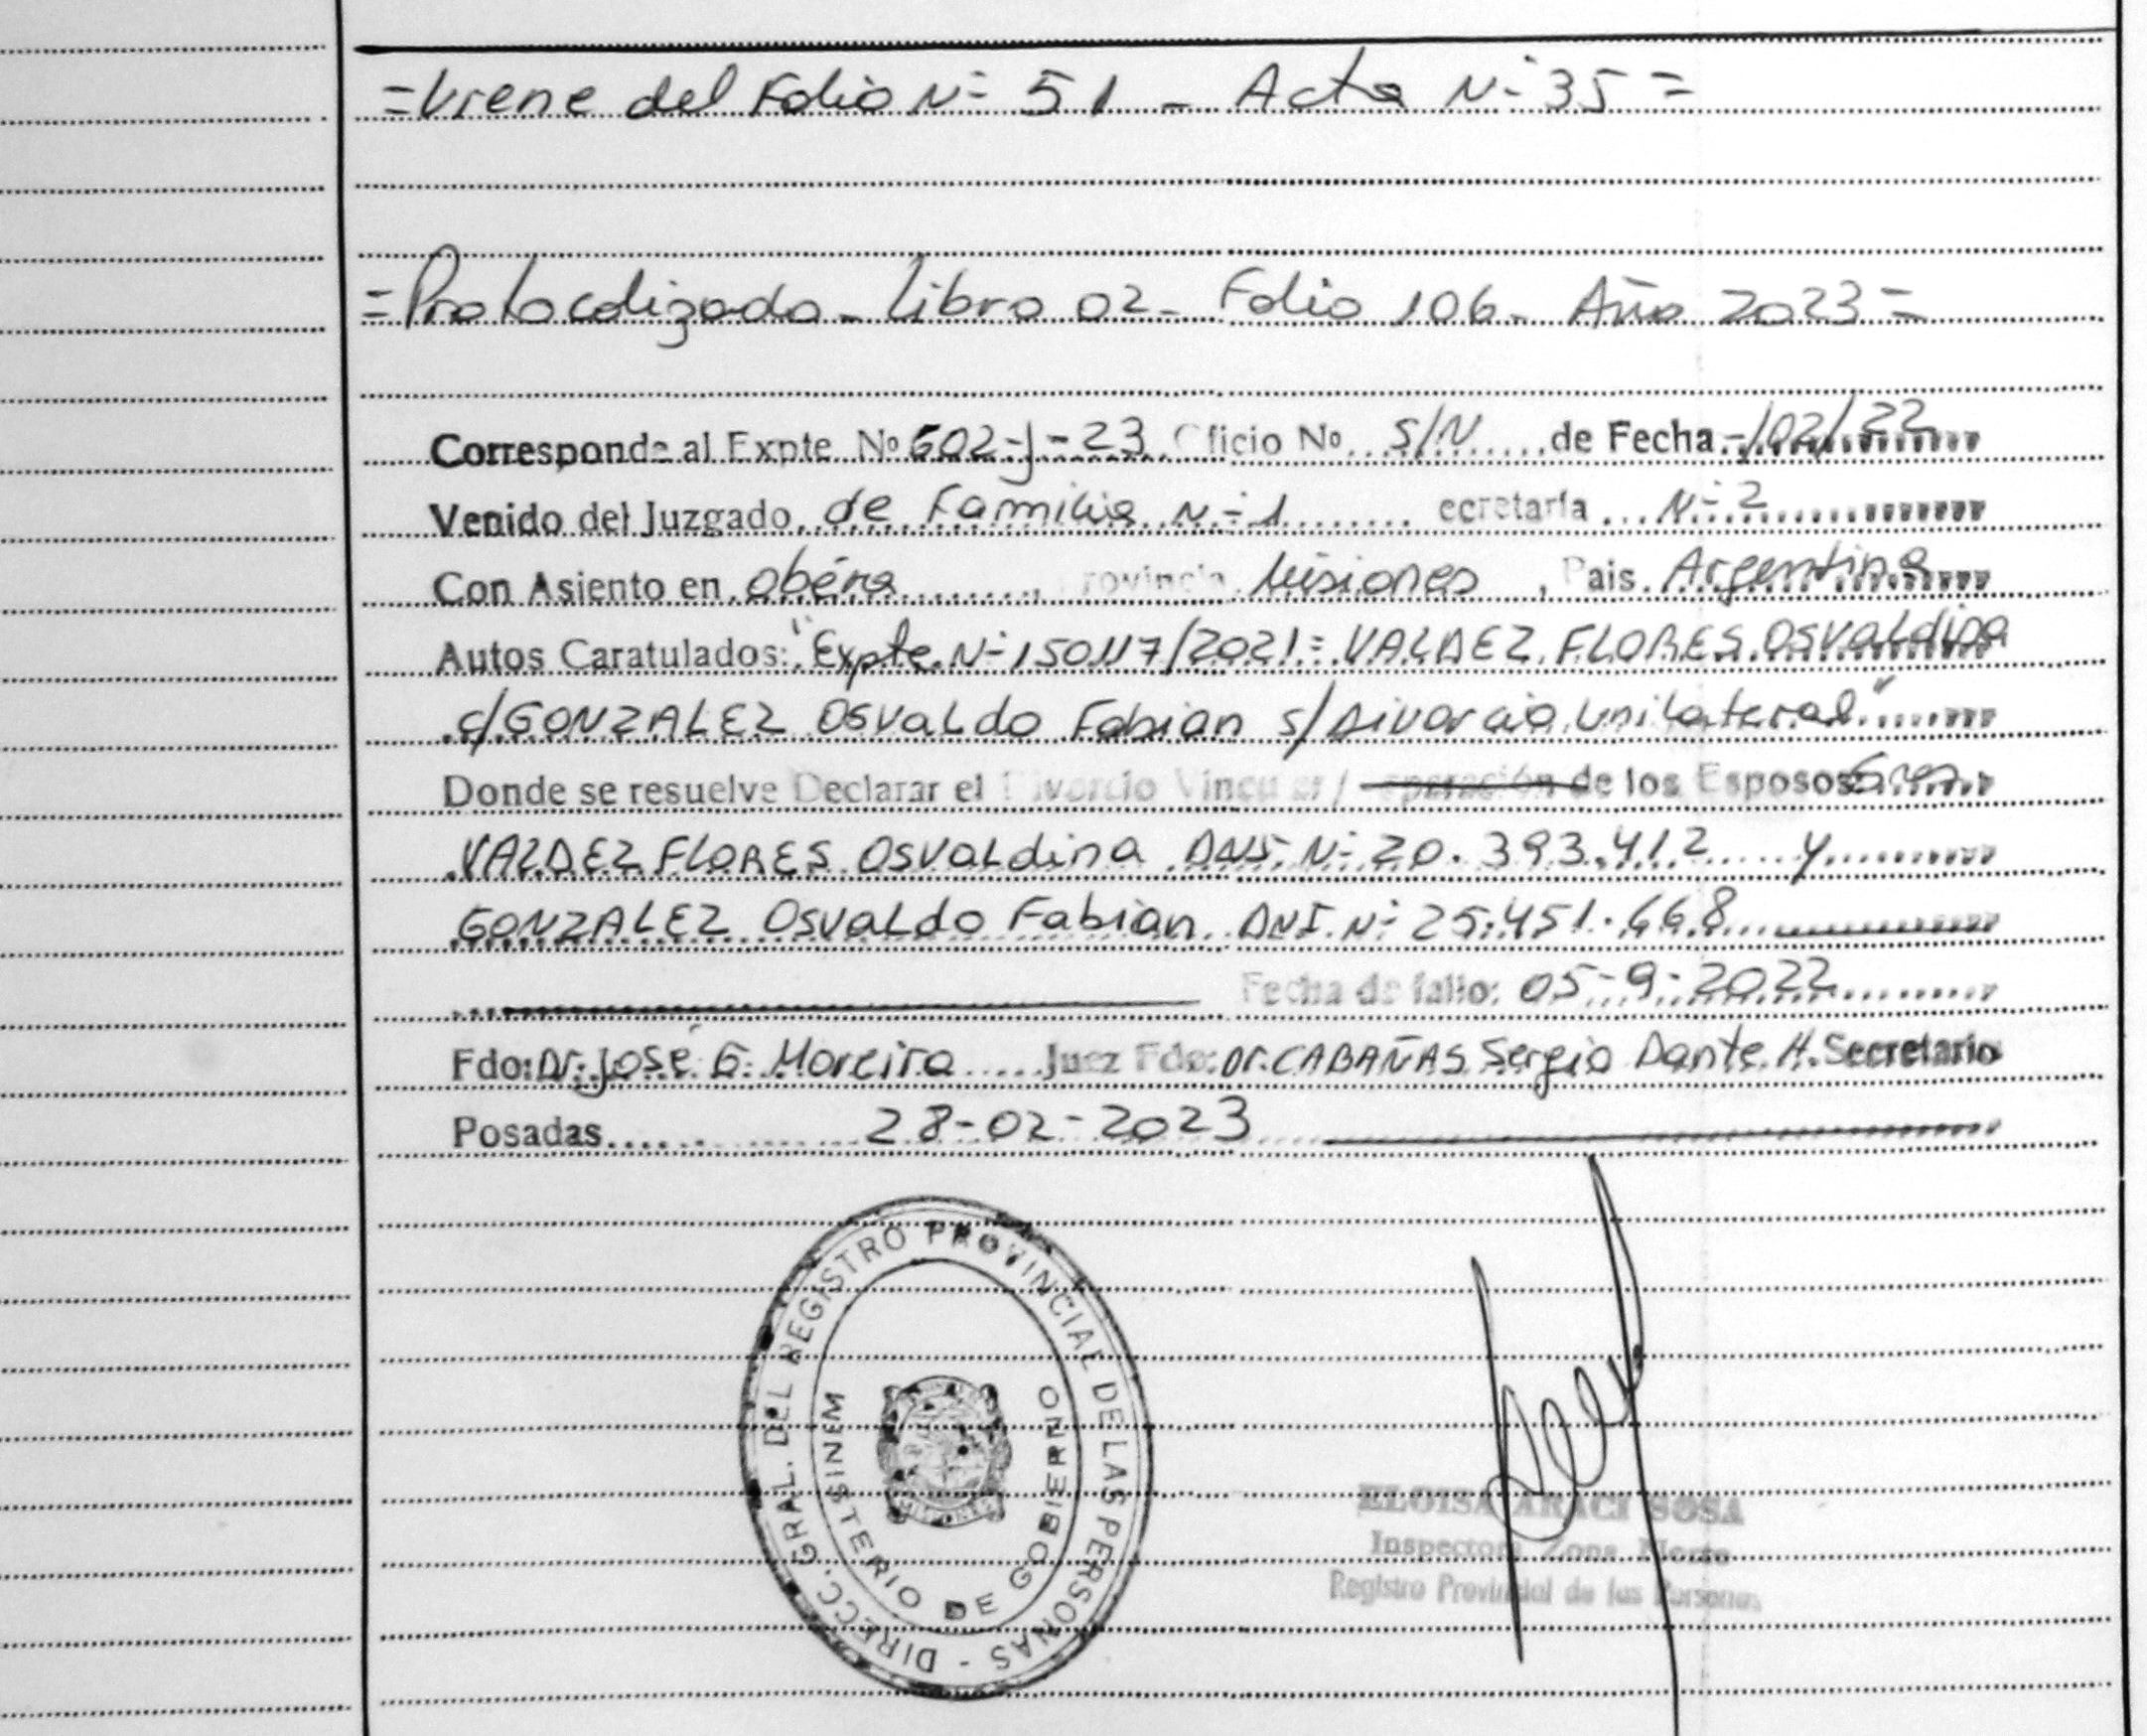 =Viene del Folio N- 51 - Acta N- 35=
=Protocolizado - Libro 02 - Folio 106 - Año 2023=
Corresponde al Expte Nº 602-J-23 Oficio Nº S/N de Fecha -/02/22
Venido del Juzgado de Familia N-1 ecretaría N-2
Con Asiento en Oberá, Provincia Misiones, Pais Argentina
Autos Caratulados: "Expte N-150117/2021= VALDEZ FLORES Osvaldina
c/GONZALEZ Osvaldo Fabian s/Divorcio Unilateral"
Donde se resuelve Declarar el Divorcio Vincular / eparación de los Esposos
VALDEZ FLORES Osvaldina DNI N- 20.393.412 y
GONZALEZ Osvaldo Fabian DNI N- 25.451.668
Fecha de fallo: 05-9-2022
Fdo: Dr. José G. Moreira Juez Fdo: Dr. CABAÑAS Sergio Dante H. Secretario
Posadas 28-02-2023
DIRECC. GRAL. DEL REGISTRO PROVINCIAL DE LAS PERSONAS -
MINISTERIO DE GOBIERNO
MISIONES
ELOISA ARACI SOSA
Inspectora Zona Norte
Registro Provincial de las Personas